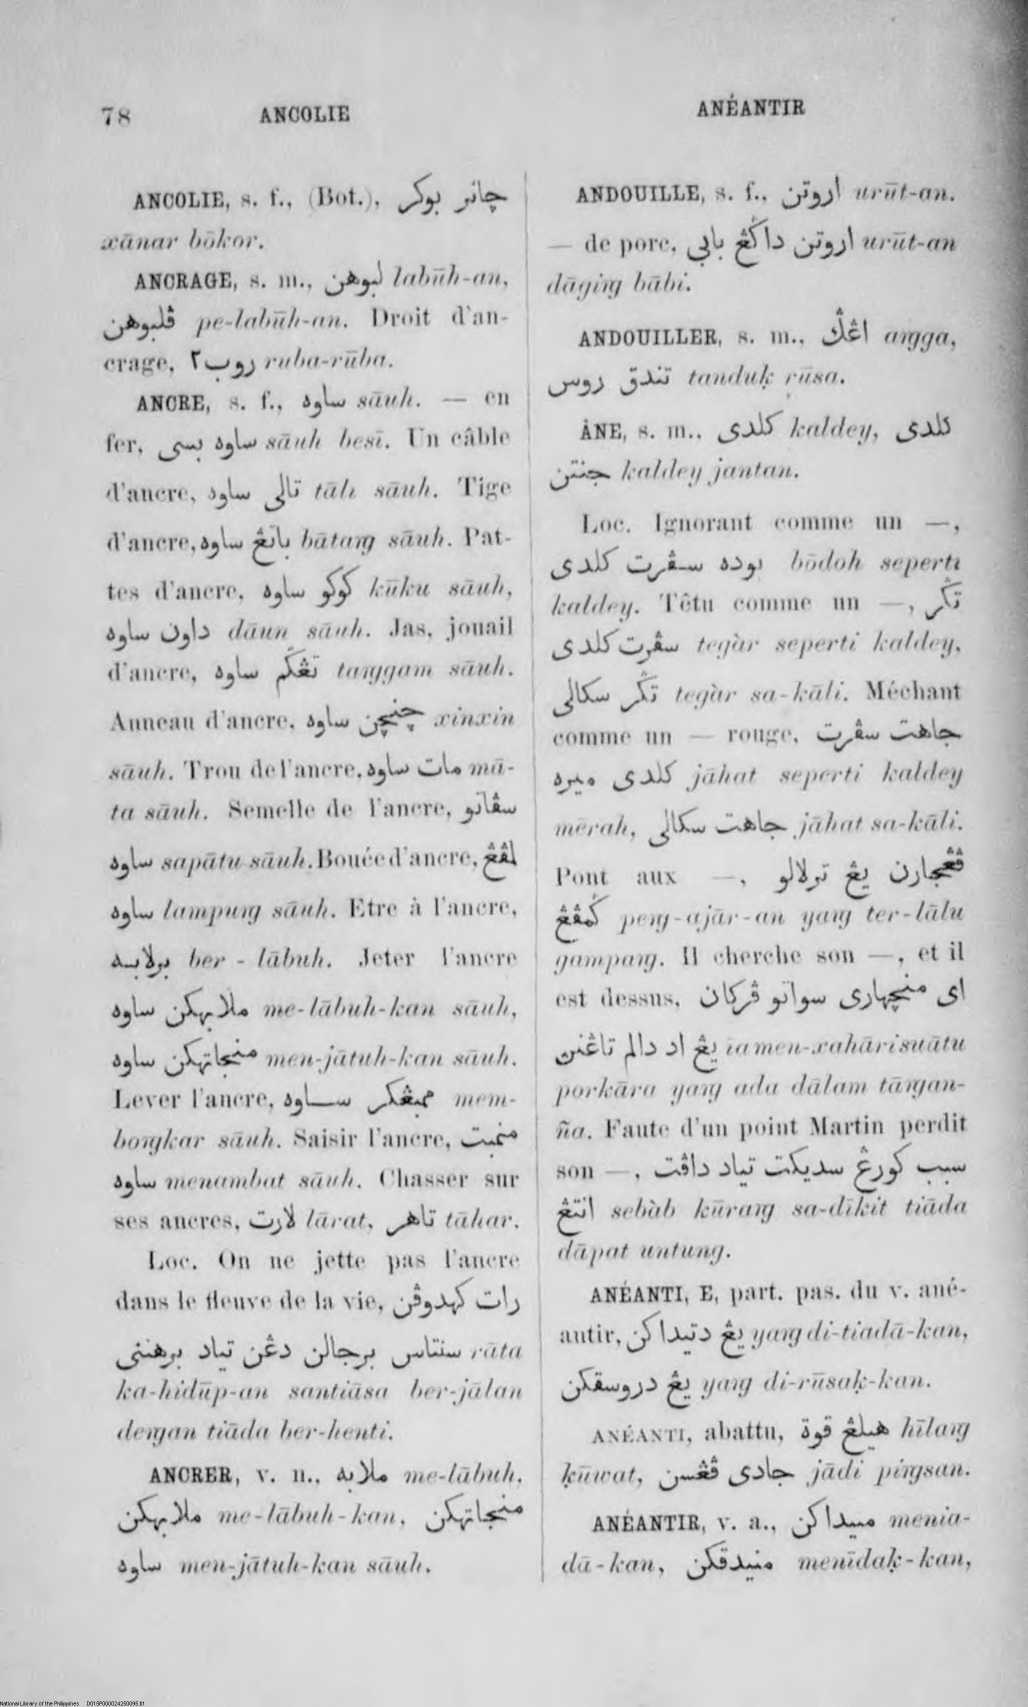 78 ANCOLIE ANÉANTIR
ANCOLIE, s. f., (Bot.), چانر بوكر
xānar bōkor.
ANCRAGE, s. m., لبوهن labūh-an,
ڤلبوهن pe-labūh-an. Droit d'an-
crage, روب٢ ruba-rūba.
ANCRE, s. f., ساوه sāuh. — en
fer, ساوه بسى sāuh besī. Un câble
d'ancre, تالى ساوه tālı sāuh. Tige
d'ancre, باتڠ ساوه bātaŋ sāuh. Pat-
tes d'ancre, كوكو ساوه kūku sāuh,
داون ساوه dāun sāuh. Jas, jouail
d'ancre, تڠݢم ساوه taŋgam sāuh.
Anneau d'ancre, چنچن ساوه xinxin
sāuh. Trou de l'ancre, مات ساوه mā-
ta sāuh. Semelle de l'ancre, سڤاتو
ساوه sapātu sāuh. Bouée d'ancre, لمڤڠ
ساوه lampuŋ sāuh. Etre à l'ancre,
برلابـه ber-lābuh. Jeter l'ancre
ملابهكن ساوه me-lābuh-kan sāuh,
منجاتهكن ساوه men-jātuh-kan sāuh.
Lever l'ancre, ممبڠكر ســاوه mem-
boŋkar sāuh. Saisir l'ancre, منمبت
ساوه menambat sāuh. Chasser sur
ses ancres, لارت lārat, تاهر tāhar.
Loc. On ne jette pas l'ancre
dans le fleuve de la vie, رات كهدوڤن
سنتياس برجالن دڠن تياد برهنتى rāta
ka-hidūp-an santiāsa ber-jālan
deŋan tiāda ber-henti.
ANCRER, v. n., ملابه me-lābuh,
ملابهكن me-lābuh-kan, منجاتهكن
ساوه men-jātuh-kan sāuh.
ANDOUILLE, s. f., اروتن urūt-an.
— de porc, اروتن داݢڠ بابي urūt-an
dāgiŋ bābi.
ANDOUILLER, s. m., اڠݢ aŋga,
تندق روس tanduḳ rūsa.
ÂNE, s. m., كلدى kaldey, كلدى
جنتن kaldey jantan.
Loc. Ignorant comme un —,
بوده سڤرت كلدى bōdoh seperti
kaldey. Têtu comme un —, تݢر
سڤرت كلدى tegàr seperti kaldey,
تݢر سكالى tegàr sa-kāli. Méchant
comme un — rouge, جاهت سڤرت
كلدى ميره jāhat seperti kaldey
mērah, جاهت سكالى jāhat sa-kāli.
Pont aux —, ڤڠجارن يڠ ترلالو
ݢمڤڠ peŋ-ajār-an yaŋ ter-lālu
gampaŋ. Il cherche son —, et il
est dessus, اى منچهارى سواتو ڤركان
يڠ اد دالم تاڠنن ia men-xahāri suātu
porkāra yaŋ ada dālam tāŋan-
ña. Faute d'un point Martin perdit
son —, سبب كورڠ سديكت تياد داڤت
انتڠ sebàb kūraŋ sa-dīkit tiāda
dāpat untuŋ.
ANÉANTI, E, part. pas. du v. ané-
antir, يڠ دتيداكن yaŋ di-tiadā-kan,
يڠ دروسقكن yaŋ di-rūsaḳ-kan.
ANÉANTI, abattu, هيلڠ قوة hīlaŋ
ḳūwat, جادى ڤڠسن jādi piŋsan.
ANÉANTIR, v. a., منيداكن menia-
dā-kan, منيدقكن menīdaḳ-kan,
National Library of the Philippines